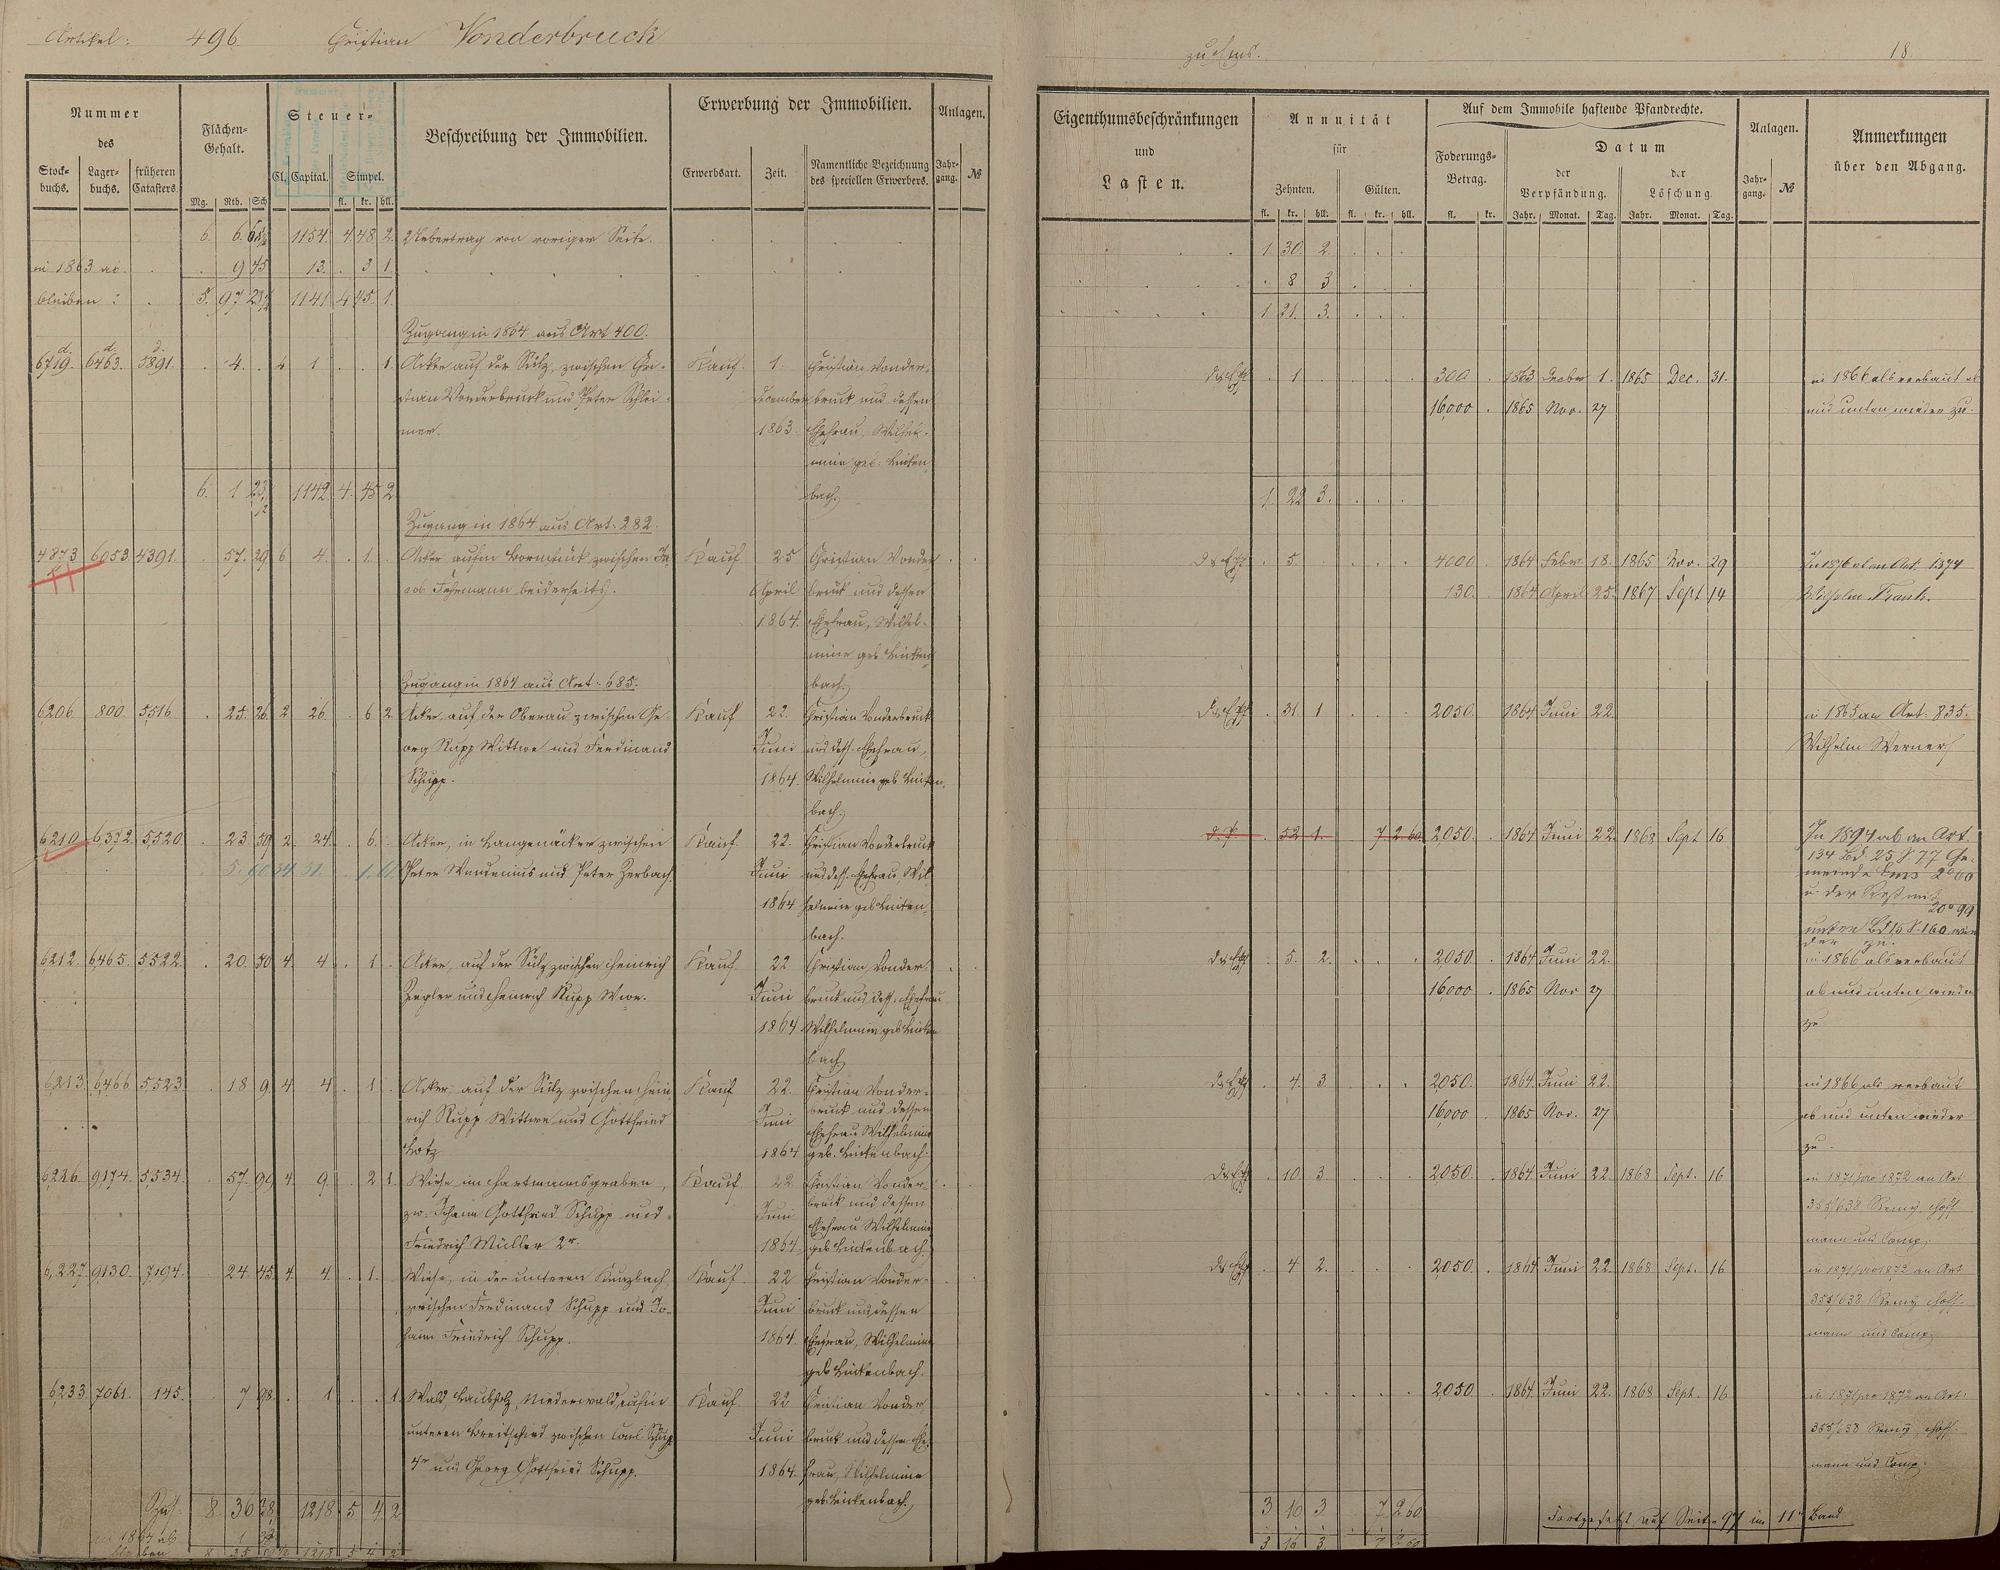 Artikel: 496. Christian Vonderbruck
zu Ems. 18.
Nummer
des
Stock-
buchs.
Lager-
buchs.
früheren
Catasters.
Flächen-
Gehalt.
Mg. Rth. Sch.
Steuer-
Cl. Capital. Simpel.
fl. kr. hll.
Beschreibung der Immobilien.
Erwerbung der Immobilien.
Erwerbsart. Zeit.
Namentliche Bezeichnung
des speciellen Erwerbers.
Anlagen.
Jahr-
gang. №
Eigenthumsbeschränkungen
und
Lasten.
Annuität
für
Zehnten. Gülten.
fl. kr. hll. fl. kr. hll.
Auf dem Immobile haftende Pfandrechte.
Foderungs-
Betrag.
fl. kr.
Datum
der
Verpfändung.
der
Löschung.
Jahr. Monat. Tag. Jahr. Monat. Tag.
Anlagen.
Jahr-
gang. №
Anmerkungen
über den Abgang.
1154. 4. 48 2. Uebertrag von voriger Seite. 1 30 2.
in 1863 ab 9 45 13. 3 1. 8 3
bleiben: 5. 97 1141 4 45. 1. 1 21. 3.
Zugang in 1864 aus Art 400.
6719. 6463. 5891. 4. 4 1 1. Acker auf der Sülz, zwischen Chri- Kauf. 1. Christian Vonder- 1 300 1863 Decbr 1. 1865 Dec. 31. in 1866 als verbaut ab
stian Vonderbruck und Peter Schlei- December bruck und dessen 16,000 1865 Nov. 27 und unten wieder zu.
mer. 1863 Ehefrau, Wilhel-
mine geb. Linken-
6. 1 1142. 4. 45 2. bach. 1. 22 3.
Zugang in 1864 aus Art. 282.
4873 6053 4391. 57. 29 6 4. 1. Acker aufm Bornstück zwischen Ja- Kauf 25 Christian Vonder- 5. 4000 1864 Febr. 18. 1865 Nov. 29 In 1876 ab an Art. 1374
cob Fuhrmann beiderseits. April bruck und dessen 130. 1864 April 25. 1867 Sept 14 Wilhelm Frank.
1864. Ehefrau, Wilhel-
mine geb Linken-
Zugang in 1864 aus Art. 685. bach.
6206 800. 5516 25. 26. 2 26. 6 2. Acker, auf der Oberau zwischen Ge- Kauf 22. Christian Vonderbruck 31 1 2050. 1864 Juni 22. in 1865 an Art. 835.
org Rupp Wittwe und Ferdinand Juni und dess. Ehefrau, Wilhelm Werner
Schupp. 1864. Wilhelmine geb Linken-
bach.
6210 6332. 5520 23 59 2. 24. 6. Acker, in Langenäcker zwischen Kauf. 22. Christian Vonderbruck 52 1. 7 2 60. 2050. 1864 Juni 22. 1868 Sept 16 In 1894 ab an Art.
Peter und Peter Zerbach. Juni und dess. Ehefrau, Wil- 134 Bd. 25 S 77 Ge-
1864 helmine geb Linken- meinde Ems
bach. u. der Rest mit
6212. 6465. 5522. 20. 50 4. 4 1. Acker, auf der Sülz zwischen Heinrich Kauf. 22 Christian Vonder- 5. 2. 2050. 1864 Juni 22. in 1866 als verbaut
Ziegler und Heinrich Rupp Wwe. Juni bruck und dess. Ehefrau 16000 1865 Nov 27 ab und unten wieder
1864 Wilhelmine geb Linken- zu
bach
6213. 6466 5523 18 9. 4. 4. 1. Acker auf der Sülz zwischen Hein- Kauf 22. Christian Vonder- 4. 3. 2050. 1864. Juni 22. in 1866 als verbaut
rich Rupp Wittwe und Gottfried Juni bruck und dessen 16,000 1865 Nov. 27 ab und unten wieder
Lotz 1864 Ehefrau Wilhelmine zu
geb. Linkenbach.
9174. 5534. 57. 99 4. 9. 2 1. Wiese im Hartmannsgraben, Kauf. 22 Christian Vonder- 10 3 2050. 1864. Juni 22. 1868 Sept. 16 in 1871/pro 1872 an Art
zw. Johann Gottfried Schupp und Juni bruck und dessen 355/638 Remy, Hoff-
Friedrich Müller 2r. 1864. Ehefrau Wilhelmine mann und Comp.
geb. Linkenbach.
6,227. 9130. 7194. 24 45. 4. 4. 1. Wiese, in der unteren Kunzbach Kauf 22 Christian Vonder- 4 2. 2050. 1864 Juni 22. 1868 Sept. 16 in 1871/pro 1872 an Art
zwischen Ferdinand Schupp und Jo- Juni bruck und dessen 355/638 Remy Hoff-
hann Friedrich Schupp. 1864. Ehefrau, Wilhelmine mann und Comp.
geb Linkenbach.
6233. 7061. 145. 7 98. 1 1. Wald, Laubholz, Niederwald, auf'm Kauf 22 Christian Vonder- 2050 1864. Juni 22. 1868 Sept. 16 in 1871/pro 1872 an Art.
unteren Breitschied zwischen Carl Schupp Juni bruck und dessen Ehe- 355/638 Remy, Hoff-
4r und Georg Gottfried Schupp. 1864. frau, Wilhelmine mann und Comp.
geb. Linkenbach.
8 36 1218 5 4 2 3 10 3. 7 2 60 Fortgesetzt auf Seite 97 im 11n Band
in 1864 ab
bleiben